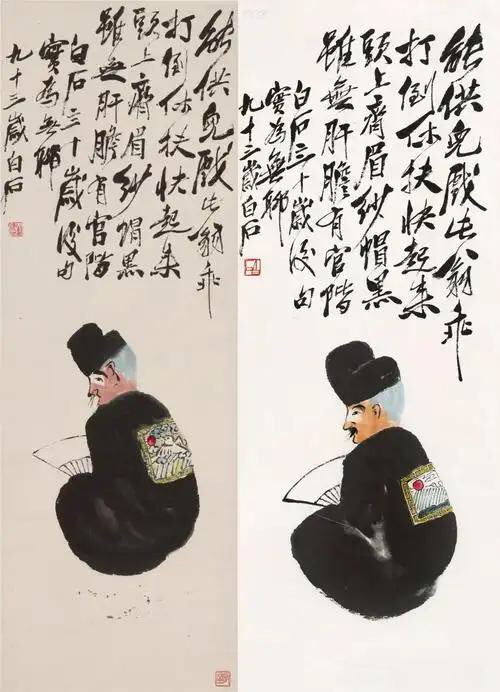 能供兒戲此翁乖
打倒休扶快起來
頭上齊眉紗帽黑
雖無肝膽有官階
白石三十歲後句
實為無聊
九十三歲白石
能供兒戲此翁乖
打倒休扶快起來
頭上齊眉紗帽黑
雖無肝膽有官階
白石三十歲後句
實為無聊
九十三歲白石